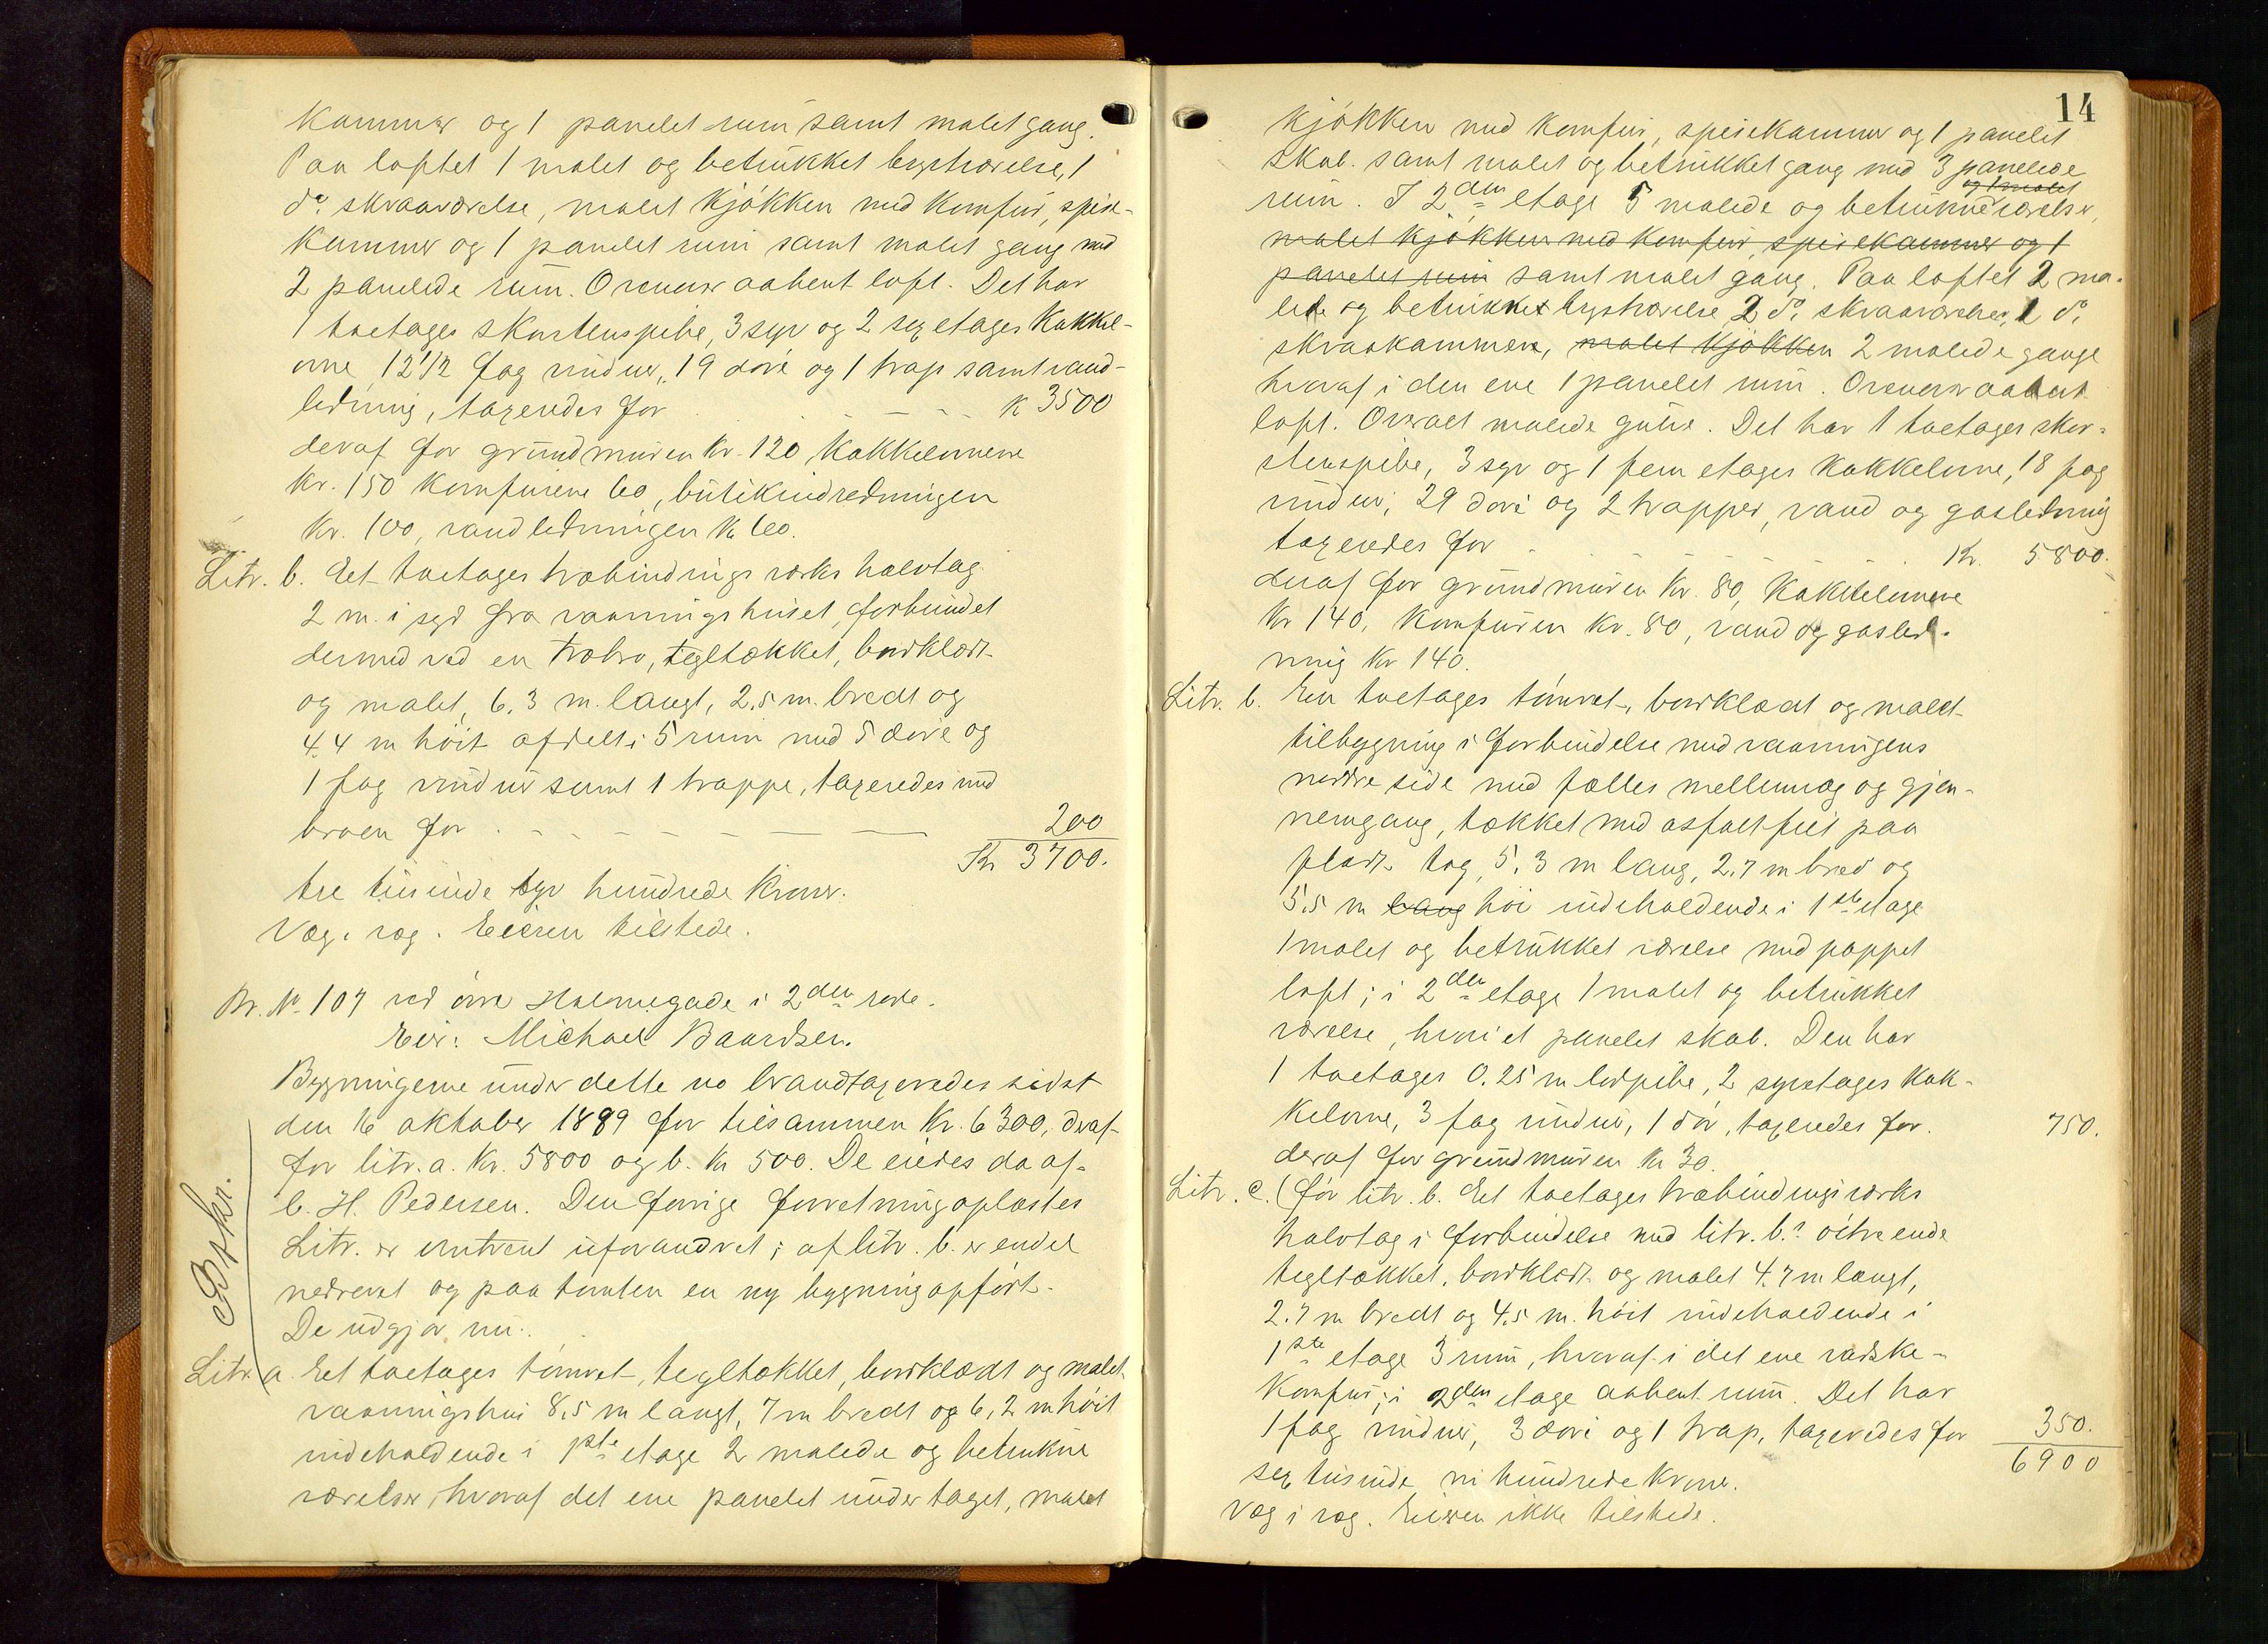 Kammer og 1 panelet rum samt malet gang.
Paa loftet 1 malet og betrukket brystværelse, 1
do. skraaværelse, malet kjøkken med komfur, spise-
kammer og 1 panelet rum samt malet gang med
2 panelede rum. Ovenover aabent loft. Det har
1 toetages skorstenspibe, 3 syv og 2 sex etages kakkel-
ovne, 12 1/2 fag vinduer, 19 døre og 1 trap samt vand-
ledning, taxeredes for . . . K 3500
deraf for grundmuren Kr. 120, kakkelovnene
Kr. 150 komfurene 60, butikindredningen
Kr. 100, vandledningen Kr 60.
Litr. b. Eet toetages træbindingsværks halvtag
2 m. i syd fra vaaningshuset, forbundet
dermed ved en træbro, tegltækket, bordklædt
og malet, 6.3 m. langt, 2.5 m. bredt og
4.4 m høit afdelt i 5 rum med 5 døre og
1 fag vinduer samt 1 trappe, taxeredes med
broen for . . . 200
Kr 3700.
tre tusinde syv hundrede Kroner.
Væg i væg. Eieren tilstede.
Br. No 107 ved øvre Holmegade i 2den rode.
Eier: Michael Baardsen.
Bygningerne under dette no brandtaxeredes sidst
den 16 oktober 1889 for tilsammen Kr. 6300, deraf
for litr. a. Kr. 5800 og b. Kr 500. De eiedes da af
C. H. Pedersen. Den forrige forretning oplæstes
Litr. er omtrent uforandret; af litr. b. er endel
nedrevet og paa tomten en ny bygning opført.
De udgjør nu:
Bskr.
Litr. a. Eet toetages tømret, tegltækket, bordklædt og malet
vaaningshus 8.5 m langt, 7 m bredt og 6,2 m høit
indeholdende i 1ste etage 2 malede og betrukne
værelser, hvoraf det ene panelet under taget, malet
14
kjøkken med komfur, spisekammer og 1 panelet
skab. samt malet og betrukket gang med 3 panelede
og 1 malet
rum. I 2den etage 5 malede og betrukne værelser,
malet kjøkken med komfur, spisekammer og 1
panelet rum samt malet gang. Paa loftet 2 ma-
lede og betrukket brystværelse, 2 do. skraaværelser, 1 do.
skraakammer, malet kjøkken 2 malede gange
hvoraf i den ene 1 panelet rum. Ovenover aabent
loft. Overalt malede gulve. Det har 1 toetages skor-
stenspibe, 3 syv og 1 fem etages kakkelovne, 18 fag
vinduer, 29 døre og 2 trapper, vand og gasledning
taxeredes for . . . Kr. 5800.
deraf for grundmuren Kr. 80, kakkelovnene
Kr 140, komfuren Kr. 80, vand og gasled-
ning Kr 140.
Litr. b. En toetages tømret, bordklædt og malet
tilbygning i forbindelse med vaaningens
nordre side med fælles mellemvæg og gjen-
nemgang, tækket med asfaltfilt paa
pladt tag, 5.3 m lang, 2.7 m bred og
5.5 m lang høi indeholdende i 1ste etage
1 malet og betrukket værelse med pappet
loft; i 2den etage 1 malet og betrukket
værelse, hvori et panelet skab. Den har
1 toetages 0.25 m lodpibe, 2 syvetages kak-
kelovne, 3 fag vinduer, 1 dør, taxeredes for. 750.
deraf for grundmuren Kr 30.
Litr. c. (før litr. b. Eet toetages træbindingsværks
halvtag i forbindelse med litr. b.s østre ende
tegltækket, bordklædt og malet 4.7 m langt,
2.7 m bredt og 4.5 m. høit indeholdende i
1ste etage 3 rum, hvoraf i det ene vadske-
komfur; i 2den etage aabent rum. Det har
1 fag vinduer, 3 døre og 1 trap, taxeredes for 350.
6900
sex tusinde ni hundrede Kroner.
Væg i væg. Eieren ikke tilstede.